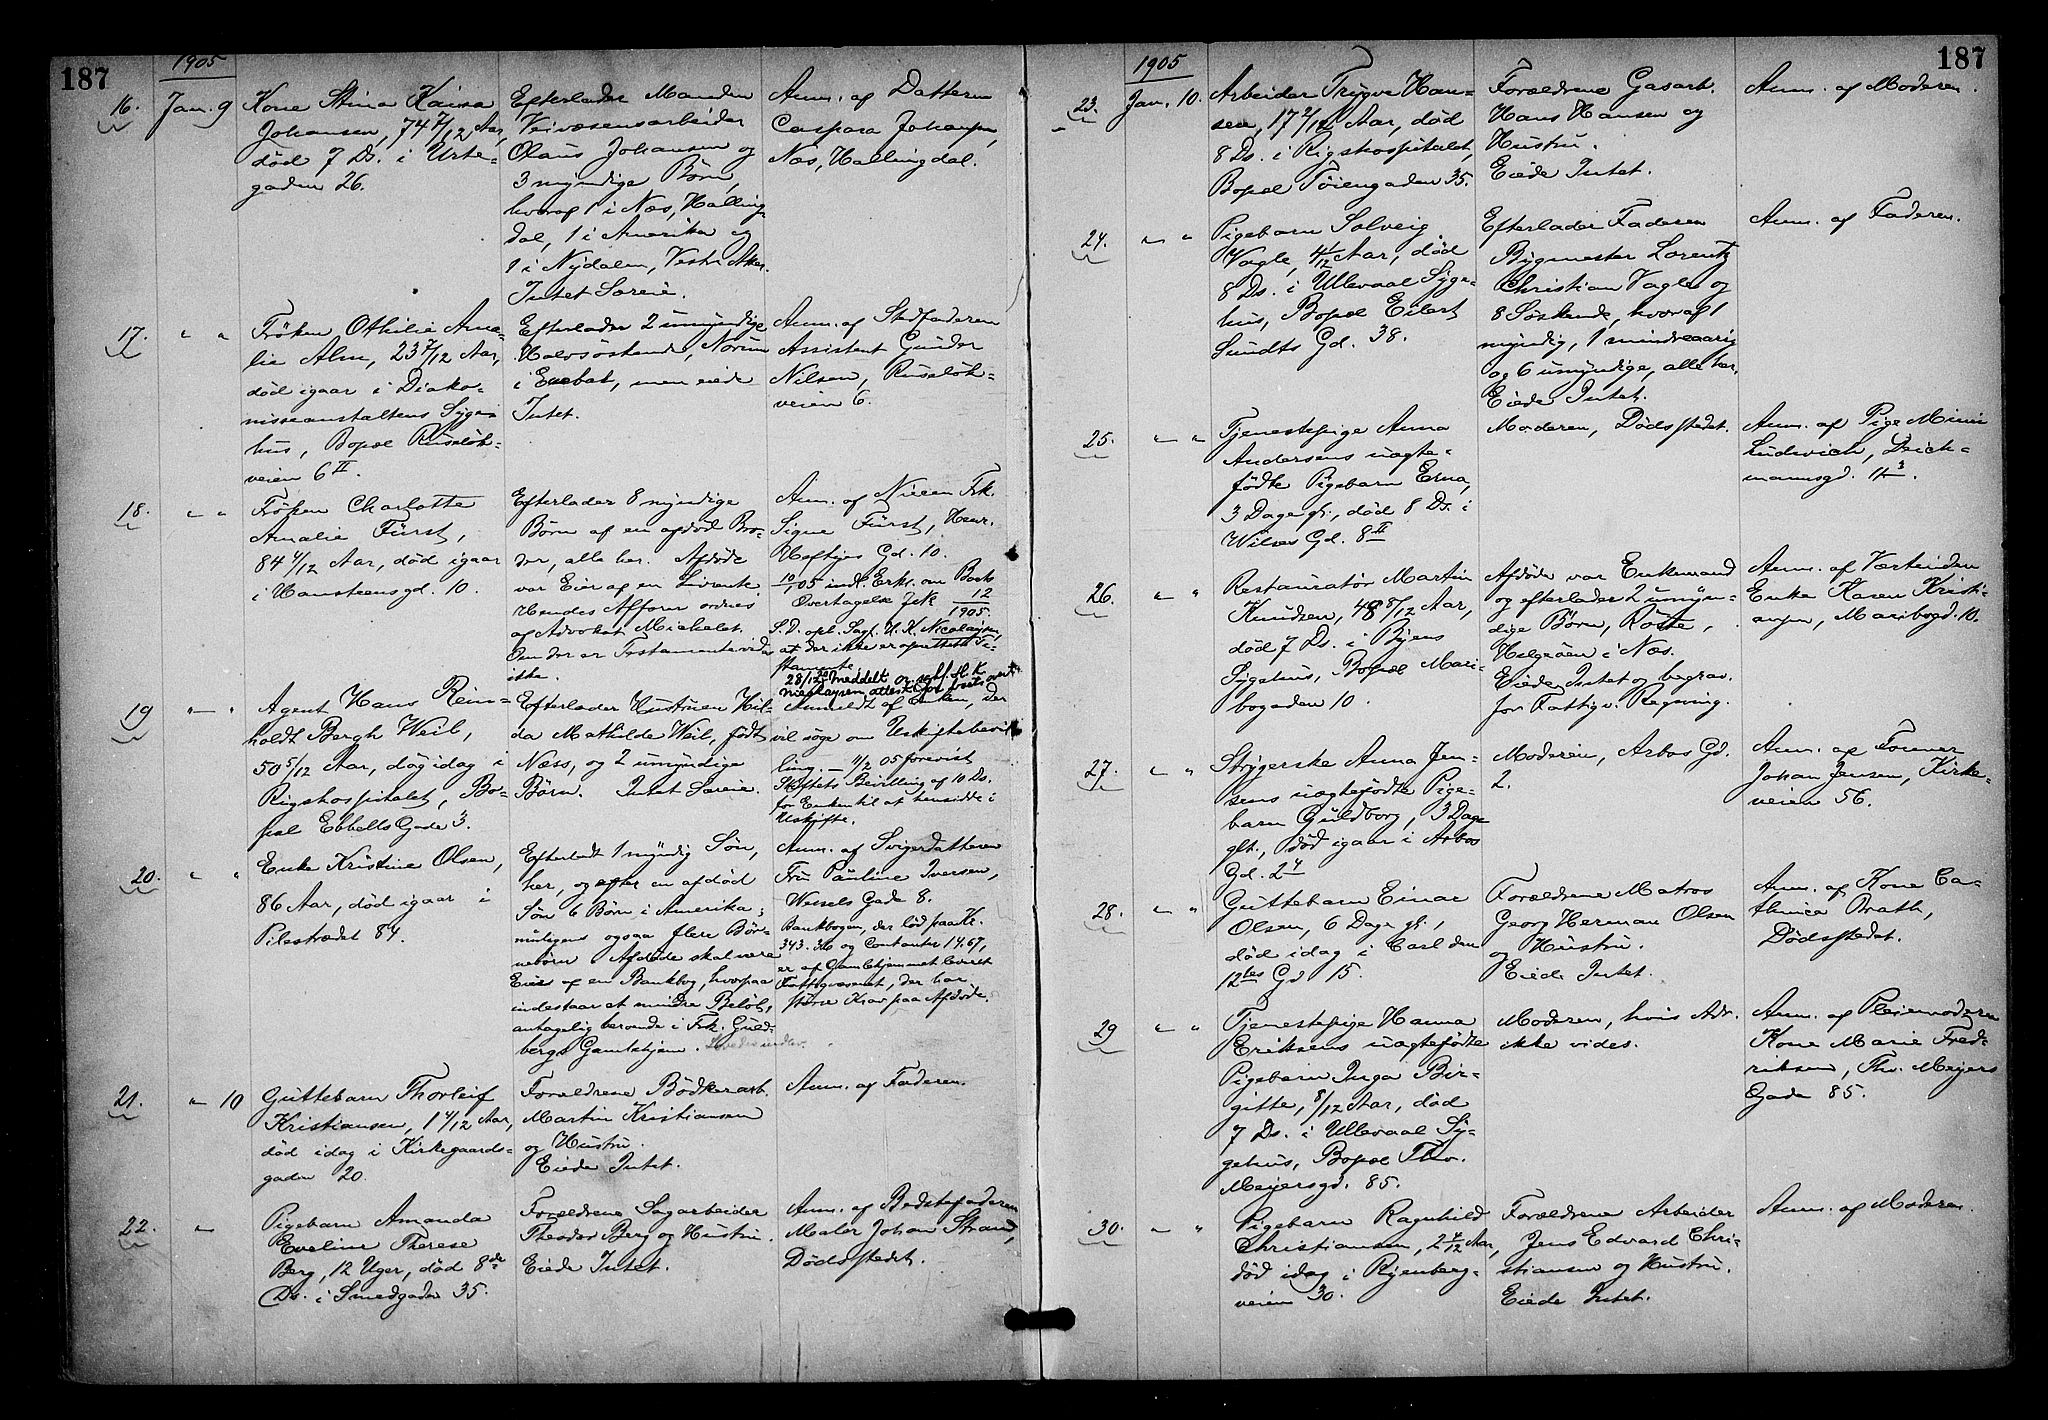 187
1905
16.
Jan. 9
Kone Stina Kaisa
Johansen, 74 7/12 Aar,
død 7 Ds. i Urte-
gaden 26.
Efterlader Manden
Veivæsensarbeider
Olaus Johansen og
3 myndige Børn,
hvoraf 1 i Næs, Halling-
dal, 1 i Amerika og
1 i Nydalen, Vestre Aker.
Intet Særeie.
Anm. af Datteren
Caspara Johansen,
Næs, Hallingdal.
17.
" "
Frøken Othilie Ama-
lie Alm, 23 7/12 Aar,
død igaar i Diako-
nisseanstaltens Syge-
hus, Bopæl Ruseløk-
veien 6 II.
Efterlader 2 umyndige
Halvsøskende,
i Enebak, men eiede
Intet.
Anm. af Stedfaderen
Assistent Gunder
Nilsen, Ruseløk-
veien 6.
18.
" "
Frøken Charlotte
Amalie Fürst,
84 4/12 Aar, død igaar
i Hansteensgd. 10.
Efterlader 8 myndige
Børn af en afdød Bro-
der, alle her. Afdøde
var Eier af en Livrente.
Hendes Affærer ordnes
af Advokat Michelet.
Om der er Testamente vides
ikke.
Anm. af Niecen Frk.
Signe Fürst, Henr.
Heftyes Gd. 10.
10/1 05 indk. Erkl. om Boets
Overtagelse JN 12/1905.
S. D. opl. Sagf. H. K. Nicolaysen,
at der ikke er oprettet Te-
stamente.
28/12 meddelt
19
" "
Agent Hans Rein-
holdt Bergh Weil,
50 5/12 Aar, døg idag i
Rigshospitalet, Bo-
pæl Ebbells Gade 3.
Efterlader Hustruen Hil-
da Mathilde Weil, født
Næss, og 2 umyndige
Børn. Intet Særeie.
Anmeldt af Enken, der
vil søge om Uskiftebevil-
ling. – 11/2 05 forevist
Skiftets Bevilling af 10 Ds.
for Enken til at hensidde i
Uskifte.
20.
" "
Enke Kristine Olsen,
86 Aar, død igaar i
Pilestrædet 84.
Efterladt 1 myndig Søn,
her, og efter en afdød
Søn 6 Børn i Amerika,
muligens ogsaa flere Bør-
nebørn. Afdøde skal være
Eier af en Bankbog, hvorpaa
indestaar et mindre Beløb,
antagelig beroende i Frk. Guld-
bergs Gamlehjem.
Anm. af Svigerdatteren
Fru Pauline Iversen,
Wessels Gade 8.
Bankbogen, der lød paa Kr.
343.30 og Contanter 14.67,
er af Gamlehjemmet leveret
Fattigvæsenet, der har
større Krav paa Afdøde.
21.
" 10
Guttebarn Thorleif
Kristiansen, 1 4/12 Aar,
død idag i Kirkegaards-
gaden 20.
Forældrene Bødkerarb.
Martin Kristiansen
og Hustru.
Eiede Intet.
Anm. af Faderen.
22.
"
Pigebarn Amanda
Eveline Therese
Berg, 12 Uger, død 8de
Ds. i Smedgaden 35.
Forældrene Sagarbeider
Theodor Berg og Hustru.
Eiede Intet.
Anm. af Bedstefaderen
Maler Johan Strand,
Dødsstedet.
187
1905
23.
Jan. 10.
Arbeider Trygve Han-
sen, 17 2/12 Aar, død
8 Ds. i Rigshospitalet,
Bopæl Tøiengaden 35.
Forældrene Gasarb.
Hans Hansen og
Hustru.
Eiede Intet.
Anm. af Moderen.
24.
" "
Pigebarn Solveig
Vagle, 4/12 Aar, død
8 Ds. i Ullevaal Syge-
hus, Bopæl Eilert
Sundts Gd. 38.
Efterlader Faderen
Bygmester Lorentz
Christian Vagle og
8 Søskende, hvoraf 1
myndig, 1 mindreaarig
og 6 umyndige, alle her.
Eiede Intet.
Anm. af Faderen.
25.
" "
Tjenestepige Anna
Andersens uægte-
fødte Pigebarn Erna,
3 Dage gl., død 8 Ds. i
Wilses Gd. 8 II
Moderen, Dødsstedet.
Anm. af Pige Mimi
Ludevich, Deich-
mannsgd. 11 3.
26.
" "
Restauratør Martin
Knudsen, 48 8/12 Aar,
død 7 Ds. i Byens
Sygehus, Bopæl Mari-
bogaden 10.
Afdøde var Enkemand
og efterlader 2 umyn-
dige Børn,
Helgøen i Næs.
Eiede Intet og begrav.
for Fattigv. Regning.
Anm. af Værtinden
Enke Karen Kristi-
ansen, Maribogd. 10.
27.
" "
Strygerske Anna Jen-
sens uægtefødte Pige-
barn Guldborg, 3 Dage
glt., død igaar i Arbos
Gd. 2 4
Moderen, Arbos Gd.
2.
Anm. af Former
Johan Jensen, Kirke-
veien 56.
28.
" "
Guttebarn Einar
Olsen, 6 Dage gl.,
død idag i Carl den
12tes Gd 15.
Forældrene Matros
Georg Herman Olsen
og Hustru.
Eiede Intet.
Anm. af Kone Ca-
thinca Brath,
Dødsstedet.
29
" "
Tjenestepige Hanna
Eriksens uægtefødte
Pigebarn Inga Bir-
gitte, 8/12 Aar, død
7 Ds. i Ullevaal Sy-
gehus, Bopæl Thv.
Meyersgd. 85.
Moderen, hvis Adr.
ikke vides.
Anm. af Pleiemoderen
Kone Marie Fred-
riksen, Thv. Meyers
Gade 85.
30.
" "
Pigebarn Ragnhild
Christiansen, 2 4/12 Aar,
død idag i Ryenberg-
veien 30.
Forældrene Arbeider
Jens Edvard Chri-
stiansen og Hustru.
Eiede Intet.
Anm. af Moderen.